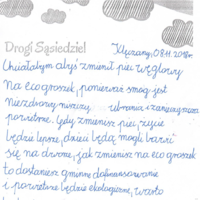 Drogi Sąsiedzie! Kluczany, 08.11.2018r.
Chciałabym abyś zmienił piec węglowy
na ekogroszek, ponieważ smog jest
niezdrowy niszczy ubrania i zanieczyszcza
powietrze. Gdy zmienisz piec, życie
będzie lepsze, dzieci będą mogły bawić
się na dworze, jak zmienisz na eko groszek
to dostaniesz gminne dofinansowanie
i powietrze będzie ekologiczne, warto